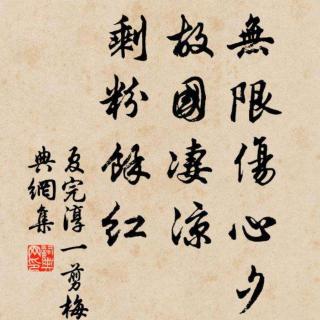 無限傷心夕
故國淒涼
剩粉餘紅
夏完淳一剪梅
典網集